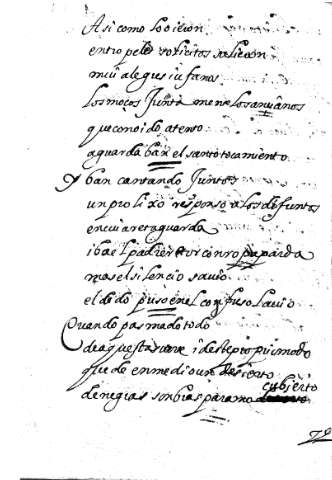 Asi como lo oieron
en tropel solicitos salieron
mui alegres iufanos
los moços Junta mente los anςianos
que con oido atento
aguardaban el santo tocamiento
Y ban cantando Juntos
un prolixo responso a los difuntos
en cuia retaguarda
iba el padre Rector con ropa parda
mas el silencio savio
el dedo puso en el confuso lavio
Quando pasmado todo
de aquesta suerte i de
que de en medio un desierto
de negras sombras paramo cubierto